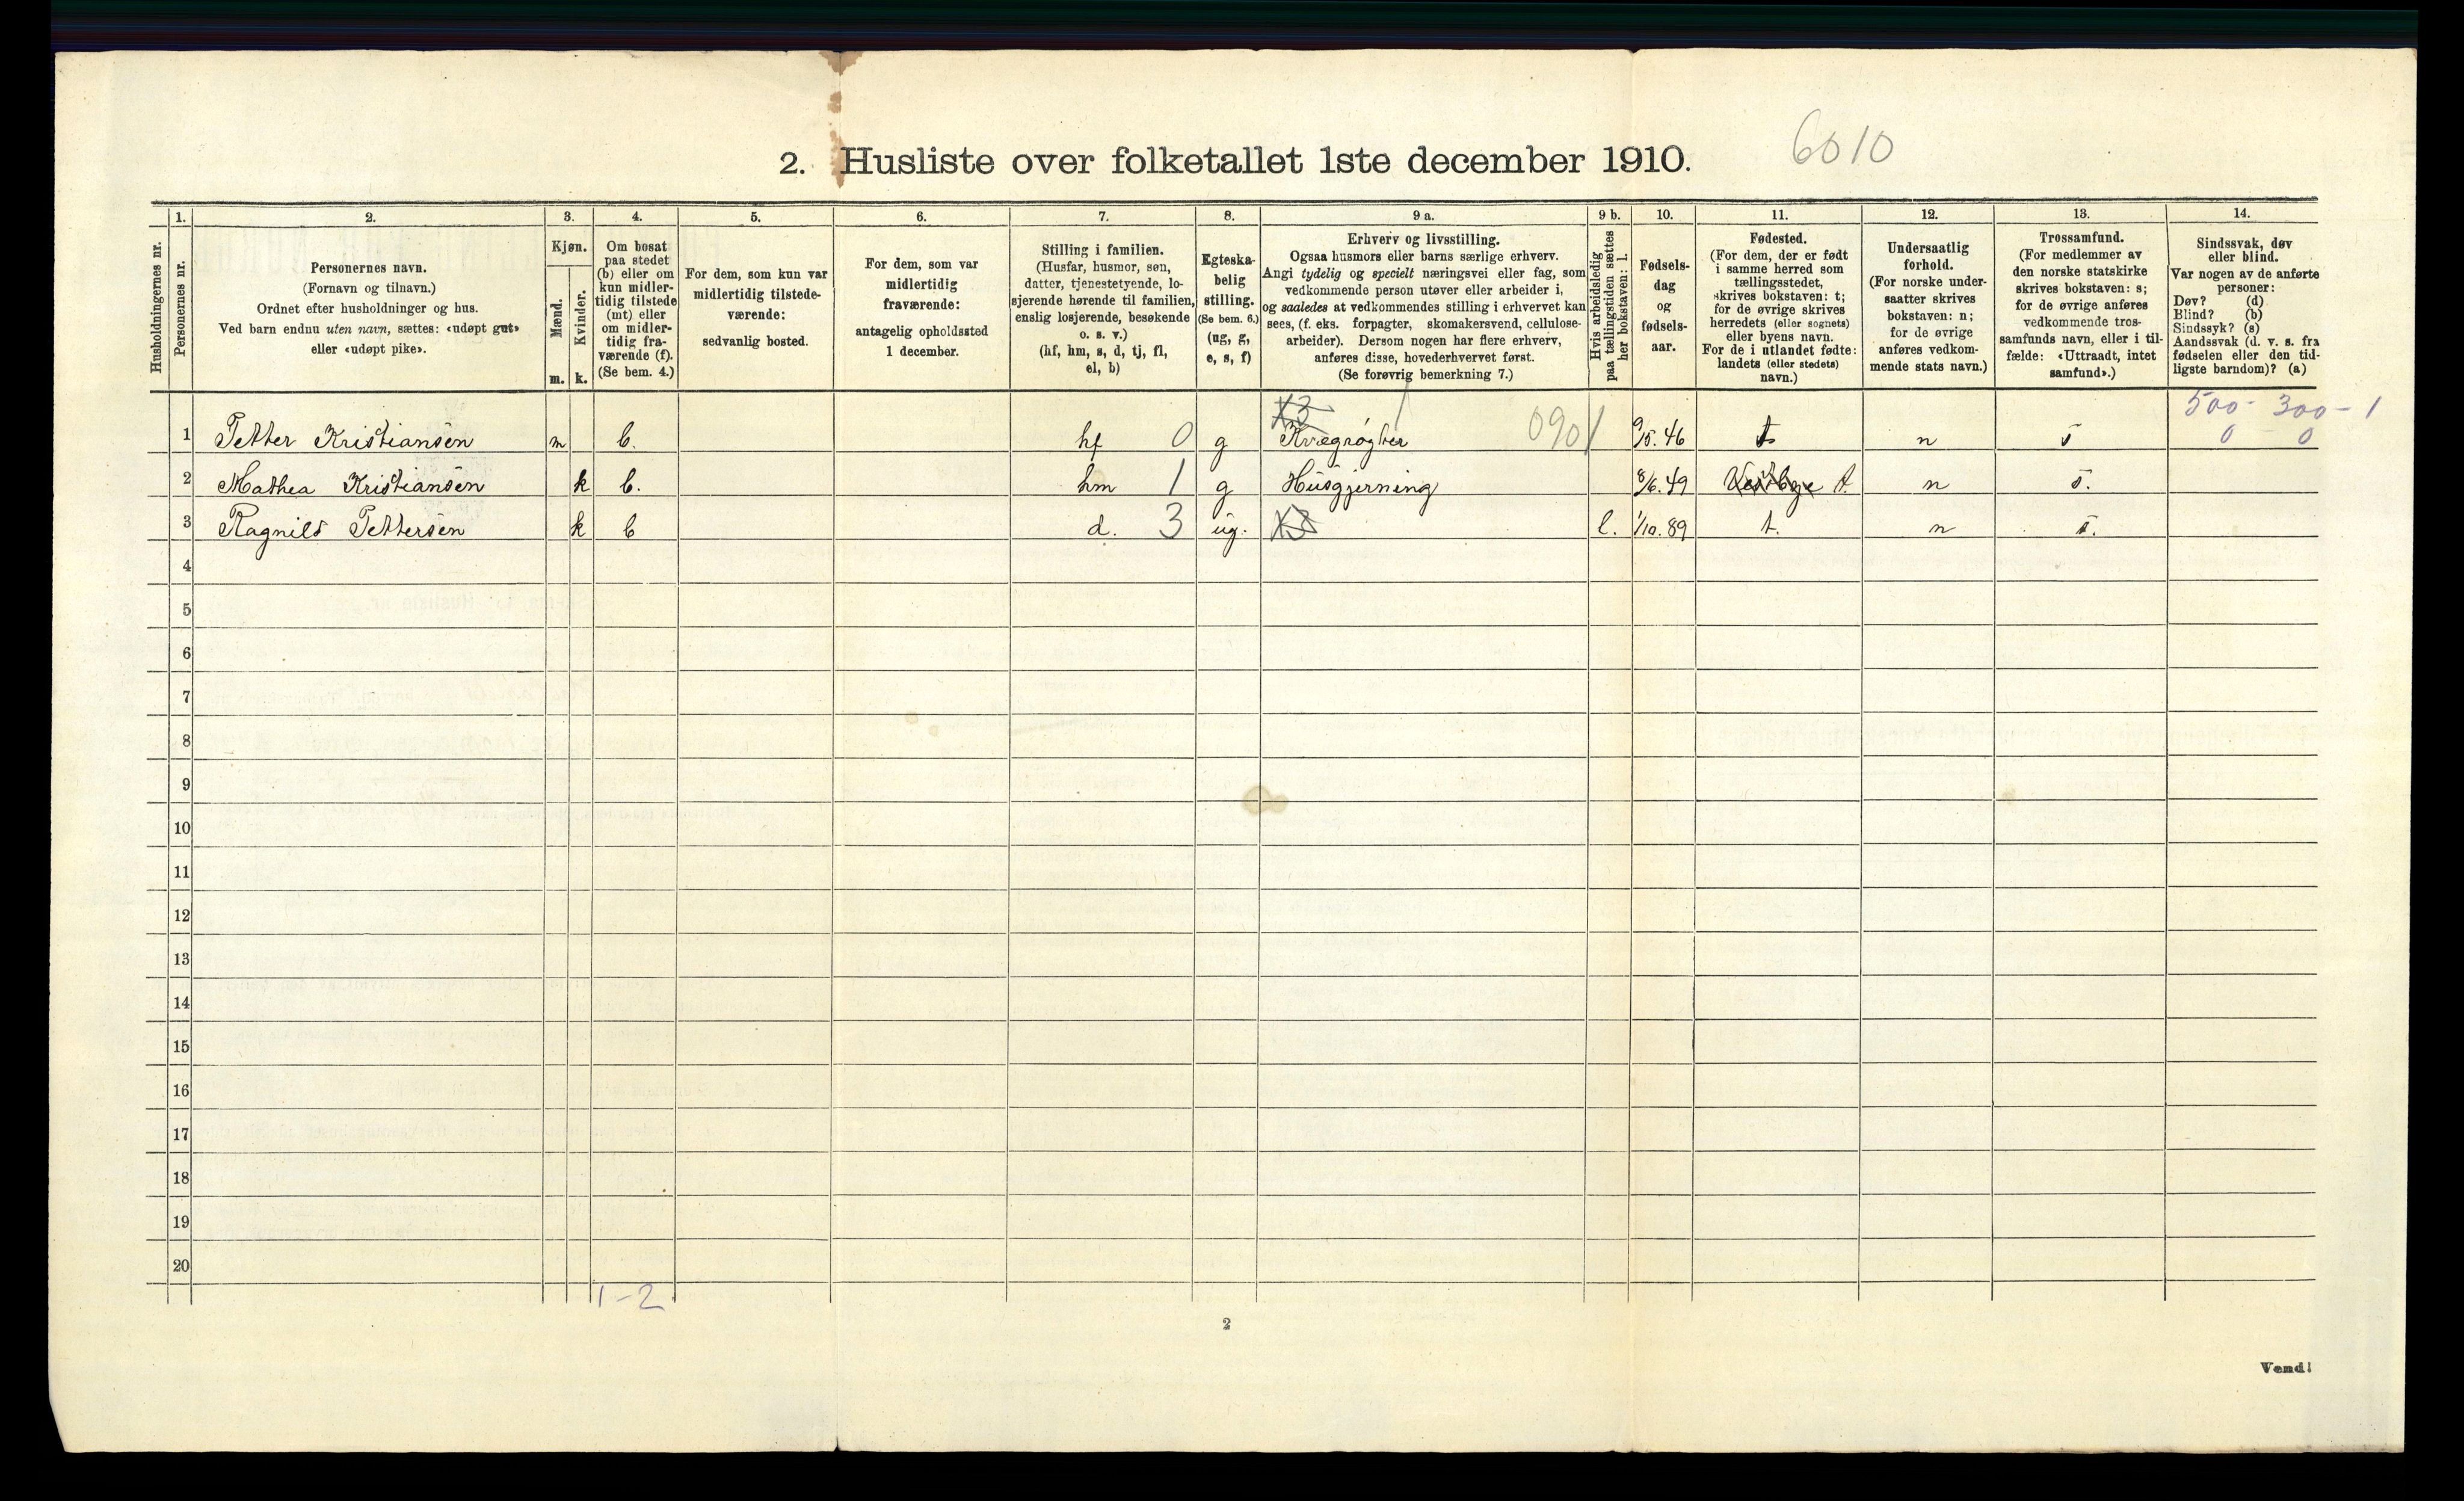 2. Husliste over folketallet 1ste december 1910. 6010
Husholdningernes nr.
1.
Personernes nr.
2.
Personernes navn.
(Fornavn og tilnavn.)
Ordnet efter husholdninger og hus.
Ved barn endnu uten navn, sættes: «udøpt gut»
eller «udøpt pike».
3.
Kjøn.
Mænd.
Kvinder.
m. k.
4.
Om bosat
paa stedet
(b) eller om
kun midler-
tidig tilstede
(mt) eller
om midler-
tidig fra-
værende (f).
(Se bem. 4.)
5.
For dem, som kun var
midlertidig tilstede-
værende:
sedvanlig bosted.
6.
For dem, som var
midlertidig
fraværende:
antagelig opholdssted
1 december.
7.
Stilling i familien.
(Husfar, husmor, søn,
datter, tjenestetyende, lo-
sjerende hørende til familien,
enslig losjerende, besøkende
o. s. v.)
(hf, hm, s, d, tj, fl,
el, b)
8.
Egteska-
belig
stilling.
(Se bem. 6.)
(ug, g,
e, s, f)
9 a.
Erhverv og livsstilling.
Ogsaa husmors eller barns særlige erhverv.
Angi tydelig og specielt næringsvei eller fag, som
vedkommende person utøver eller arbeider i,
og saaledes at vedkommendes stilling i erhvervet kan
sees, (f. eks. forpagter, skomakersvend, cellulose-
arbeider). Dersom nogen har flere erhverv,
anføres disse, hovederhvervet først.
(Se forøvrig bemerkning 7.)
9 b.
Hvis arbeidsledig
paa tællingstiden sættes
her bokstaven: l.
10.
Fødsels-
dag
og
fødsels-
aar.
11.
Fødested.
(For dem, der er født
i samme herred som
tællingsstedet,
skrives bokstaven: t;
for de øvrige skrives
herredets (eller sognets)
eller byens navn.
For de i utlandet fødte:
landets (eller stedets)
navn.)
12.
Undersaatlig
forhold.
(For norske under-
saatter skrives
bokstaven: n;
for de øvrige
anføres vedkom-
mende stats navn.)
13.
Trossamfund.
(For medlemmer av
den norske statskirke
skrives bokstaven: s;
for de øvrige anføres
vedkommende tros-
samfunds navn, eller i til-
fælde: «Uttraadt, intet
samfund».)
14.
Sindssvak, døv
eller blind.
Var nogen av de anførte
personer:
Døv? (d)
Blind? (b)
Sindssyk? (s)
Aandssvak (d. v. s. fra
fødselen eller den tid-
ligste barndom)? (a)
X3 500 - 300 - 1
1 Petter Kristiansen m b. hf 0 g Kvægrøgter 0901 9/5. 46 t n s 0 0
2 Mathea Kristiansen k b. hm 1 g Husgjerning 8/6. 49 Vestbye t. n s.
3 Ragnild Pettersen k b d. 3 ug. X3 l. 1/10. 89 t. n s.
4
5
6
7
8
9
10
11
12
13
14
15
16
17
18
19
20
1-2
2
Vend!